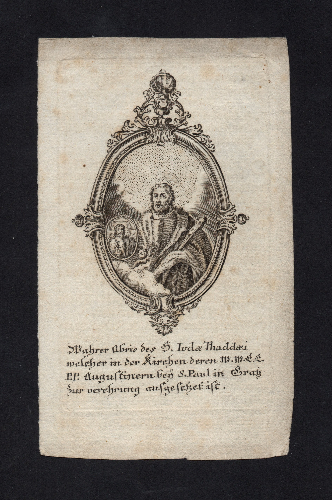 Wahrer Abris des S. Iudæ Thaddæi
welcher in der Kirchen deren W.W.E.E.
P.P. Augustinern beÿ S. Paul in Gratz
zur verehrung ausgesetzet ist.